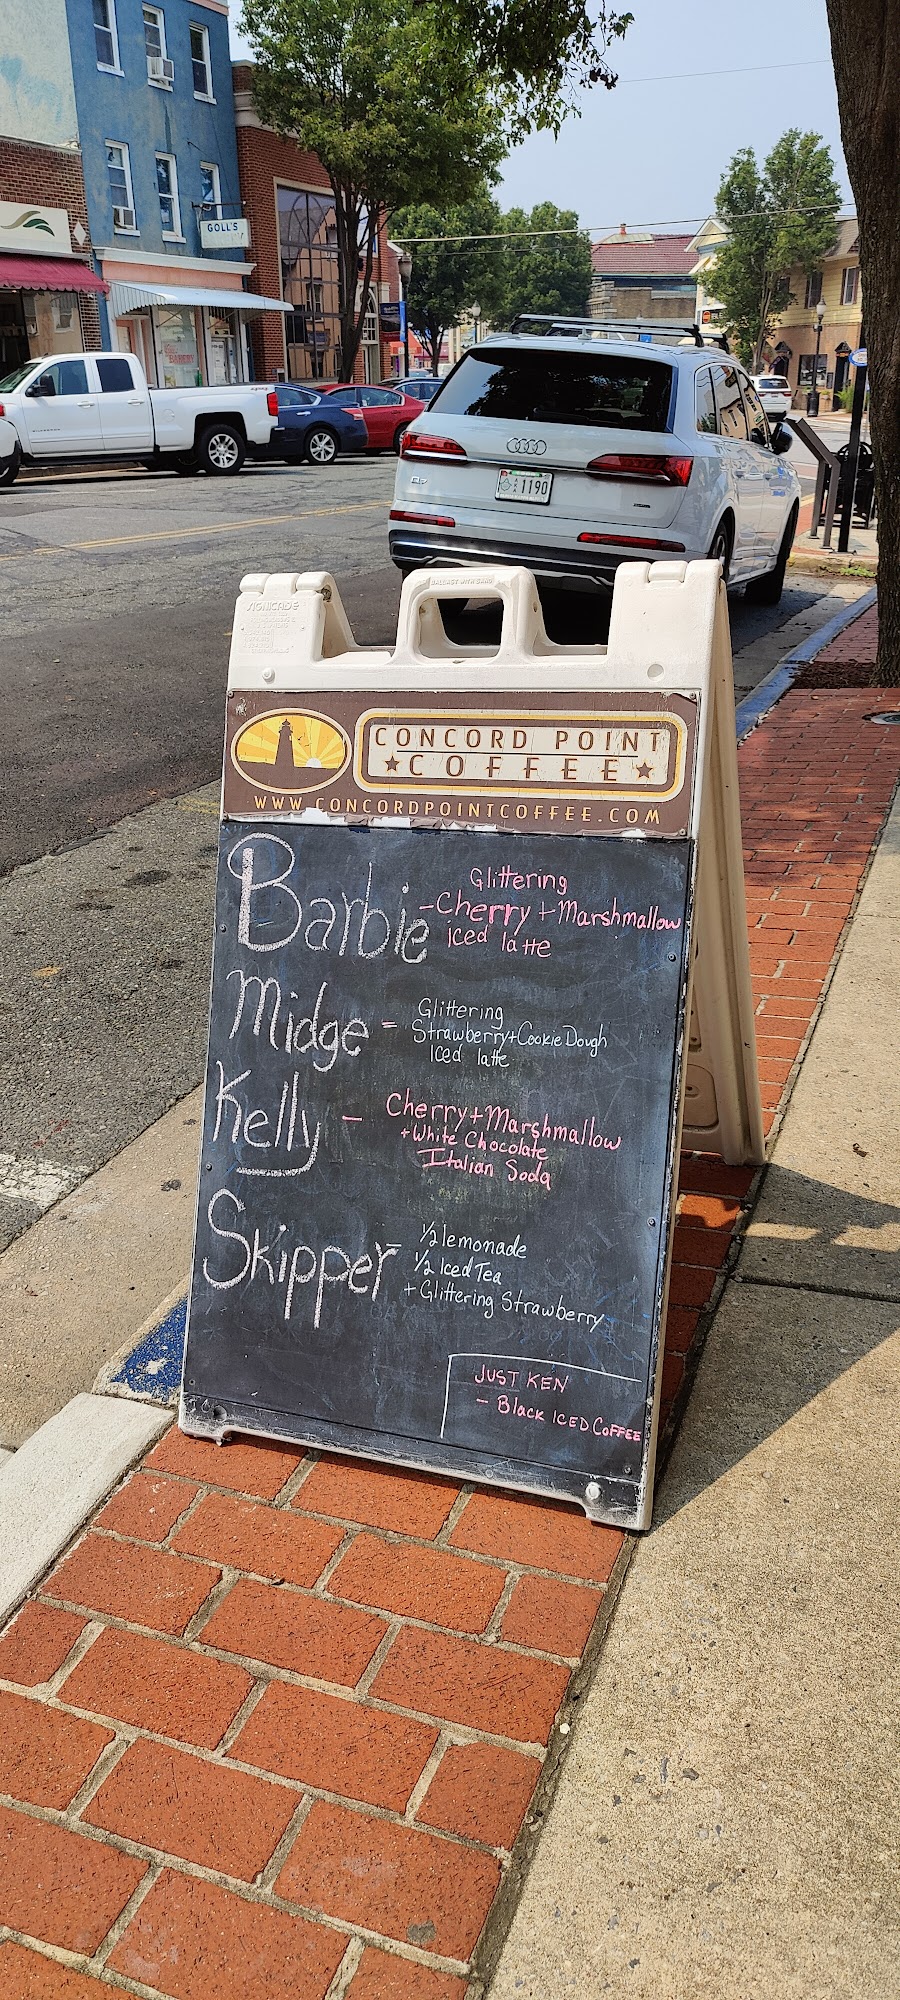 GOLL'S
BAKERY
Q7
1190
BALLAST WITH SAND
SIGNICADE
CONCORD POINT
COFFEE
WWW.CONCORDPOINTCOFFEE.COM
Barbie
Glittering
- Cherry + Marshmallow
iced latte
Midge -
Glittering
Strawberry + Cookie Dough
Iced latte
Kelly -
Cherry + Marshmallow
+ White Chocolate
Italian Soda
Skipper -
1/2 lemonade
1/2 Iced Tea
+ Glittering Strawberry
JUST KEN
- Black ICED COFFEE